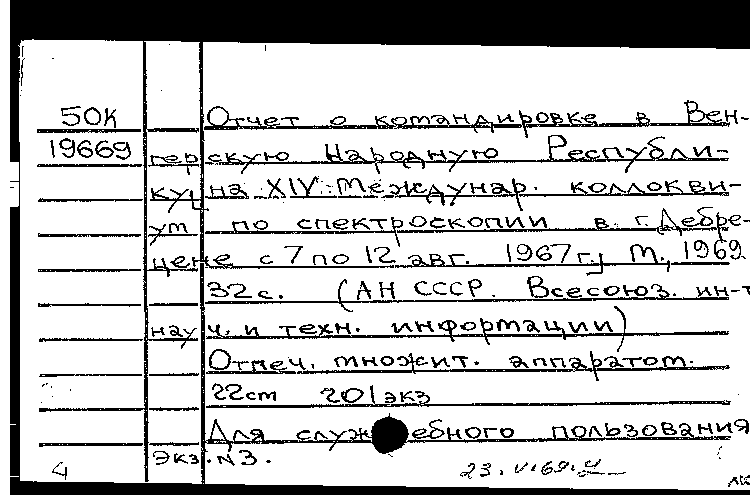 50К Отчет о командировке в Вен-
19669 герскую Народную Республи-
ку на XIV Междунар. коллокви-
ум по спектроскопии в г. Дебре-
цене с 7 по 12 авг. 1967 г., М., 1969
32с. (АН СССР. Всесоюз. ин-т
науч. и техн. информации)
Отпеч. множит. аппаратом.
22см 201экз
Для служебного пользования
4 Экз. №3. 23.VI.69.